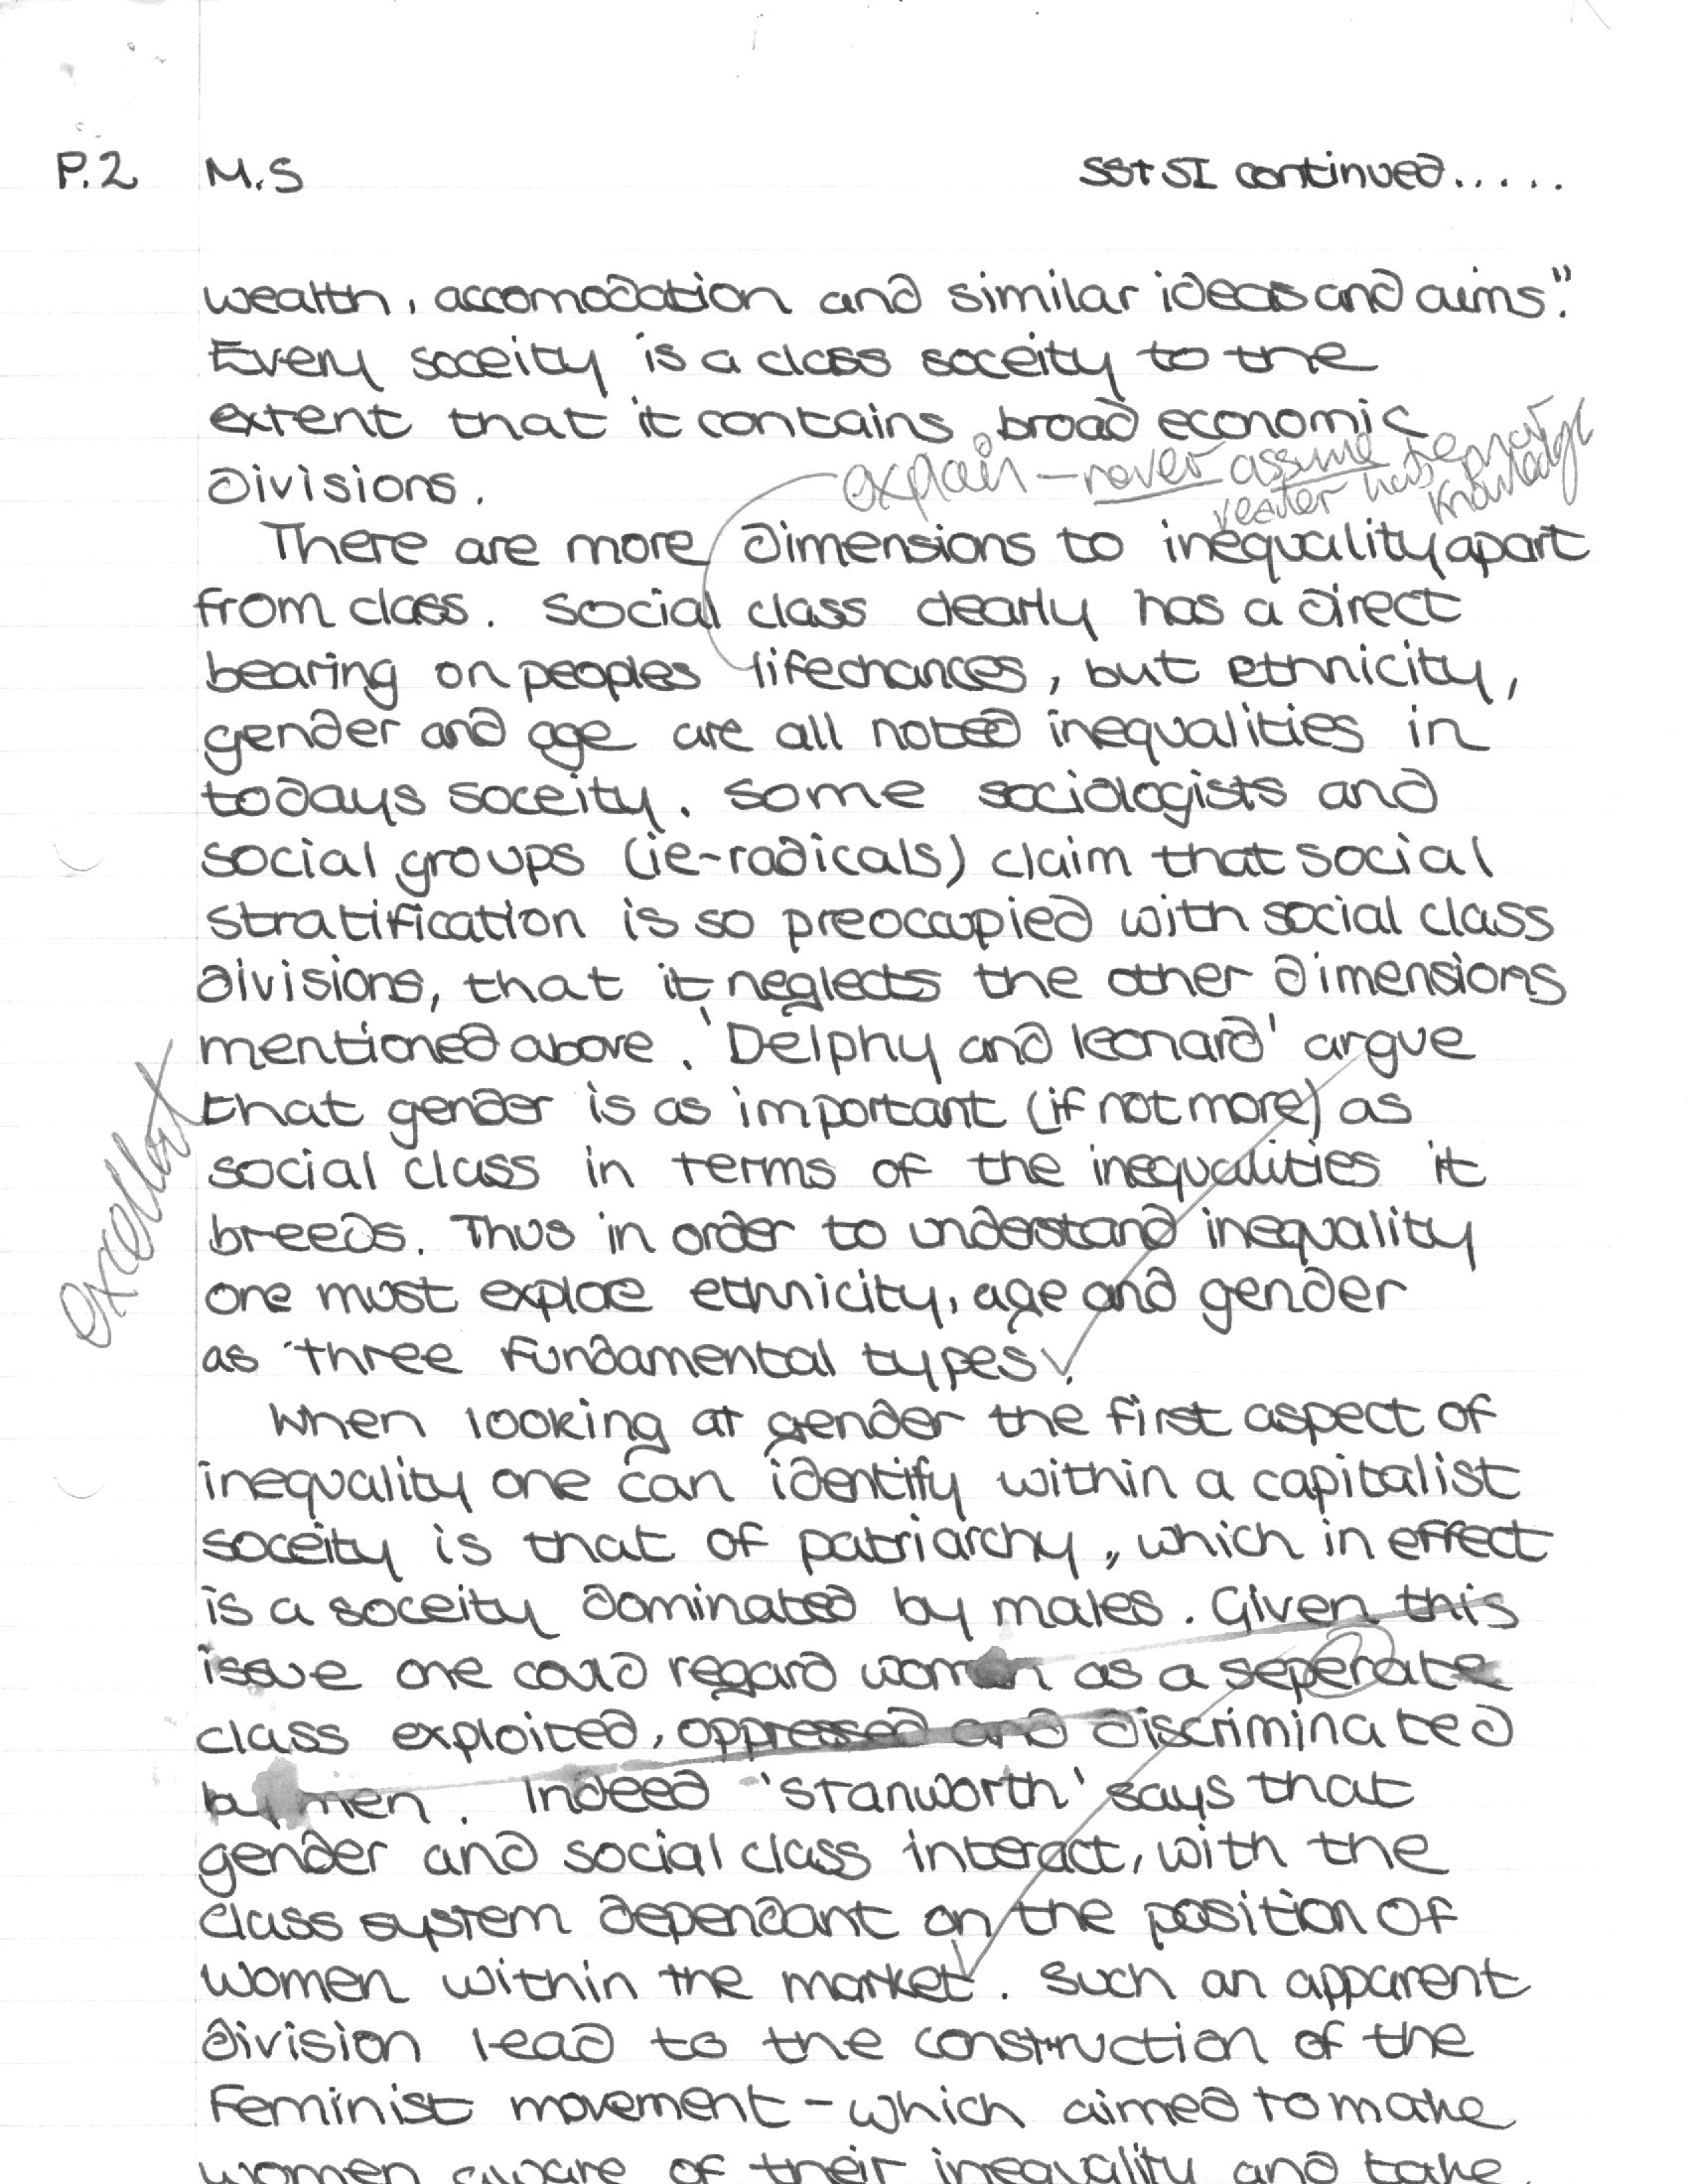 P.2 M.S SS+SI continued.....
wealth, accomodation and similar ideas and aims".
Every soceity is a class soceity to the
extent that it contains broad economic
divisions.
explain - never assume
reader has
knowledge
There are more dimensions to inequality apart
from class. Social class clearly has a direct
bearing on peoples lifechances, but ethnicity,
gender and age are all noted inequalities in
todays soceity. Some sociologists and
social groups (ie-radicals) claim that social
stratification is so preoccupied with social class
divisions, that it neglects the other dimensions
mentioned above. 'Delphy and leonard' argue
that gender is as important (if not more) as
social class in terms of the inequalities it
breeds. Thus in order to understand inequality
one must explore ethnicity, age and gender
as three fundamental types.
excellent
When looking at gender the first aspect of
inequality one can identify within a capitalist
soceity is that of patriarchy, which in effect
is a soceity dominated by males. Given this
issue one could regard women as a seperate
class exploited, oppressed and discriminated
by men. Indeed 'Stanworth' says that
gender and social class interact, with the
class system dependant on the position of
women within the market. Such an apparent
division lead to the construction of the
Feminist movement - which aimed to make
women aware of their inequality and take